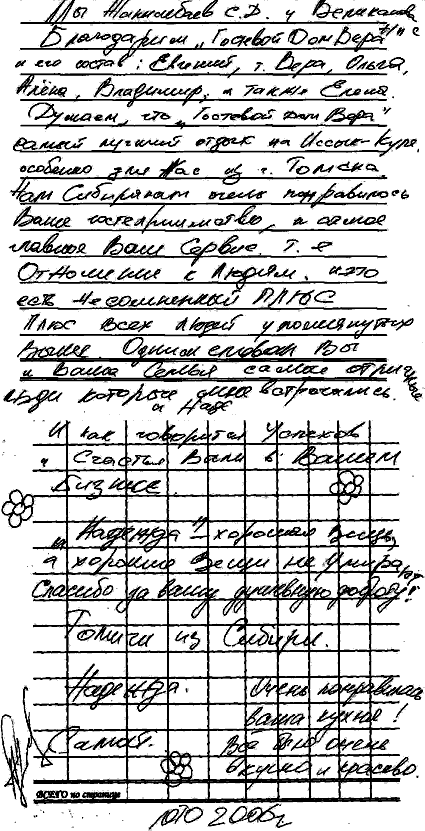 Мы Жанимбаев С.Д. и Великанова Н.С
Благодарим "Гостевой Дом Вера"
и его состав: Евгений, т. Вера, Ольга,
Алёна, Владимир, а также Елена.
Думаем, что "Гостевой дом Вера"
самый лучший отдых на Иссык-Куле,
особенно для Нас из г. Томска.
Нам Сибирякам очень понравилось
Ваше гостеприимство, и самое
главное Ваш Сервис. т. е
Отношение к Людям. и это
есть Несомненный ПЛЮС
Плюс Всех Людей упомянутых
выше. Одним словом Вы
и Ваша Семья самые
люди которые мне встречались.
и Наде
И как говорится Успехов
и Счастья Вам в Вашем
Бизнесе.
"Надежда" - хорошая вещь,
а хорошие вещи не умирают
Спасибо за вашу душевную доброту!
Томичи из Сибири.
Надежда.
Очень понравилась
ваша кухня!
Самат.
Всё было очень
вкусно и красиво.
ВСЕГО по странице
2006г